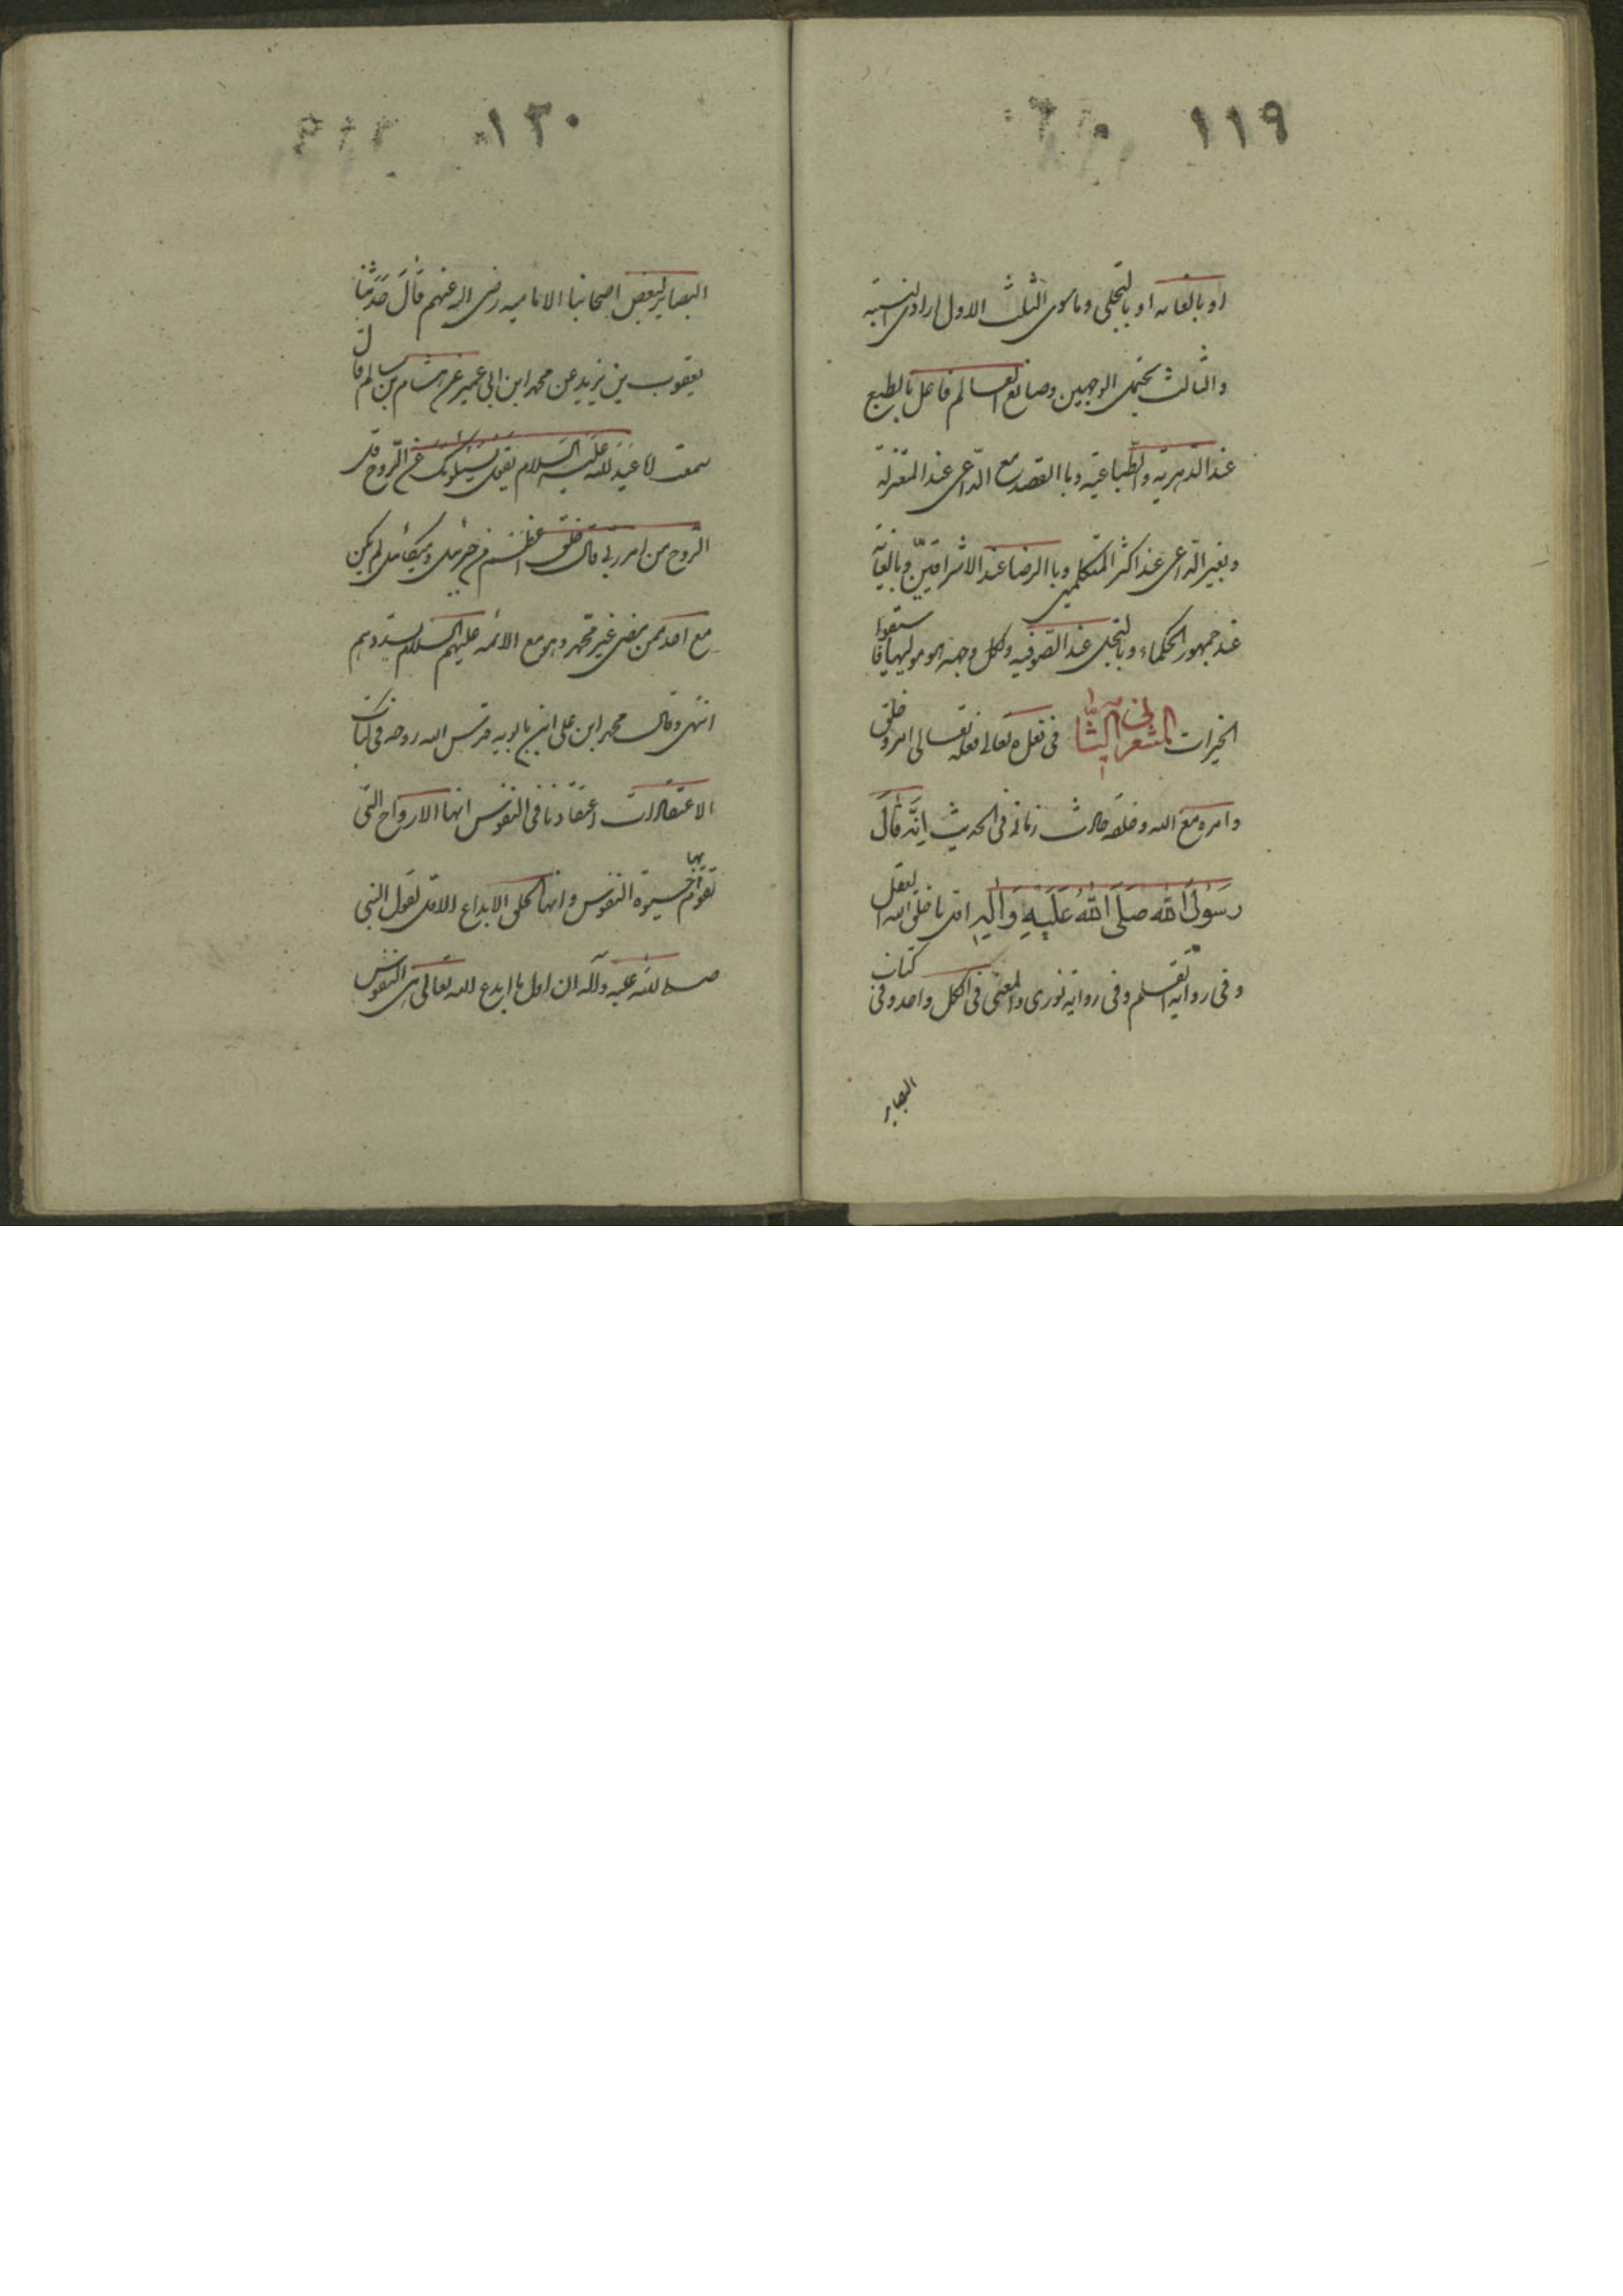 ١١٩
او بالعنایه او بالتجلی وما سوی الثلث الاول ارادی البتة
والثالث یحتمل الوجهین وصانع العالم فاعل بالطبع
عند الدهریه والطباعیه وبا القصد مع الداعی عند المعتزلة
وبغیر الداعی عند اکثر المتکلمین وبا الرضا عند الاشراقیین وبالعنایه
عند جمهور الحکماء وبالتجلی عند الصوفیه ولکل وجهة هو مولیها فاستبقوا
الخیرات المشعر الثانی فی فعله تعالی فعله تعالی امر وخلق
وامره مع الله وخلقه حادث زمانی فی الحدیث اِنَّه قالَ
رَسُولُ اللهِ صَلَی اللهُ عَلَیهِ وَالِهِ اول ما خلق الله العقل
وفی روایه القلم وفی روایه نوری والمعنی فی الکل واحد وفی کتاب
البصایر
١٢٠
البصایر لبعض اصحابنا الامامیه رضی الله عنهم قالَ حَدَثَنا
یعقوب بن یزید عن محمد ابن ابی عمیر عن هشام بن سالم قال
سمعت ابا عَبدِ الله عَلَیهِ السَلام یقول یَسئَلُونَکَ عَنِ الرُّوحِ قل
الرّوح من امر ربی قال خلق اعظم من جبرئیل ومیکائیل لم یکن
مع احد ممن مضی غیر محمد وهو مع الائمه علیهم السلام یسددهم
انتهی وقال محمد ابن علی ابن بابویه قدس الله روحه فی کتاب
الاعتقادات اعتقادنا فی النفوس انها الارواح التی
تقوم بها حیوة النفوس وانها الخلق الاول لقول النبی
صلی الله علیه وآله ان اول ما ابدع الله تعالی هی النفوس